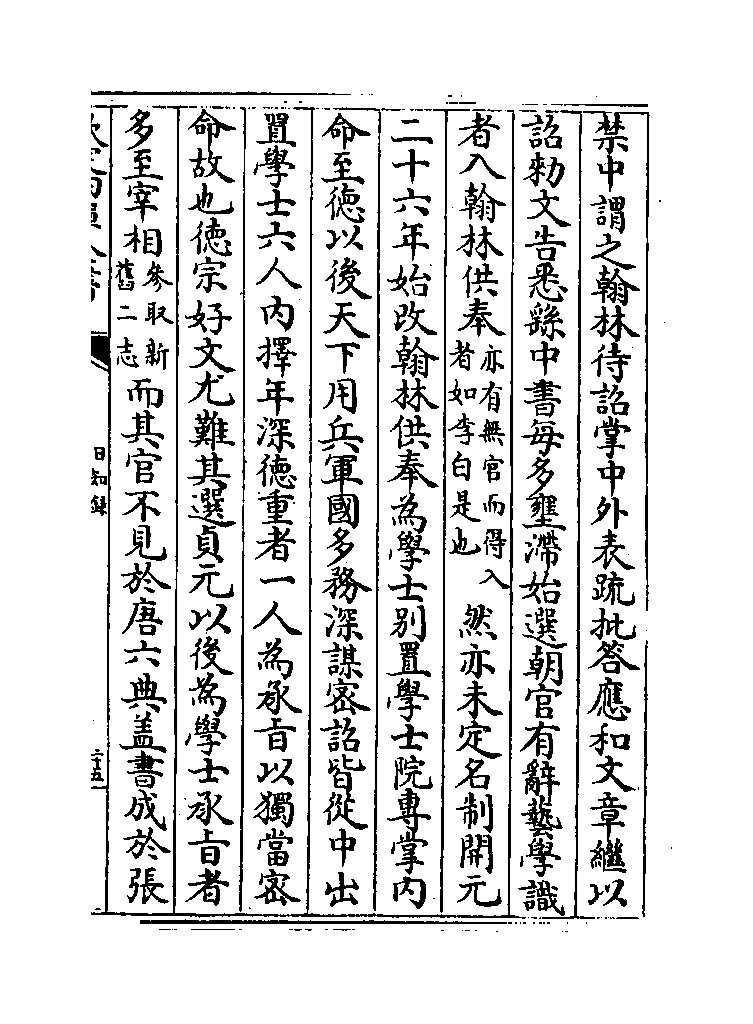 禁中謂之翰林待詔掌中外表疏批答應和文章繼以
詔勑文告悉繇中書每多壅滯始選朝官有辭藝學識
者入翰林供奉亦有無官而得入者如李白是也然亦未定名制開元
二十六年始改翰林供奉為學士别置學士院專掌内
命至徳以後天下用兵軍國多務深謀密詔皆從中出
置學士六人内擇年深徳重者一人為承㫖以獨當密
命故也徳宗好文尤難其選貞元以後為學士承㫖者
多至宰相參取新舊二志而其官不見於唐六典盖書成於張
日知録